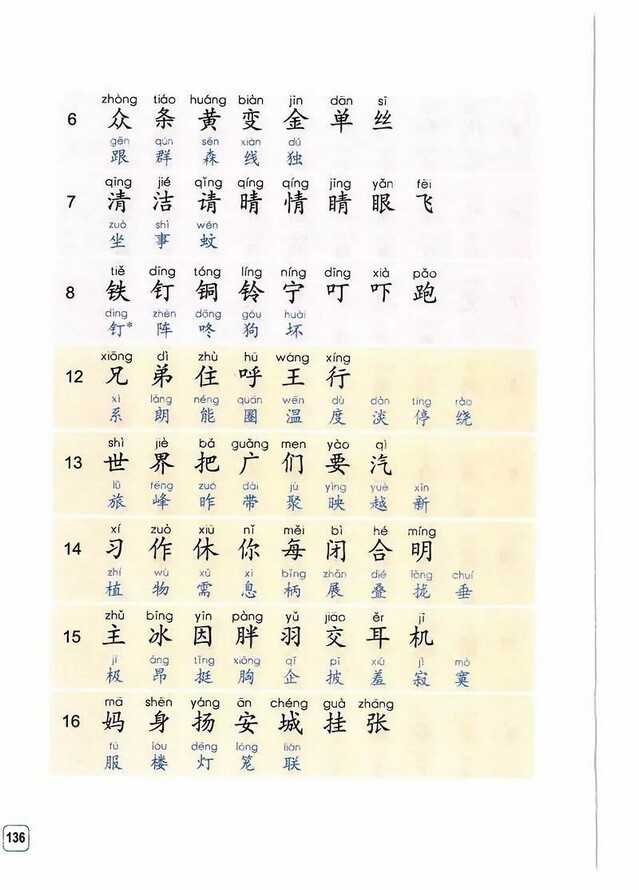 zhòng tiáo huáng biàn jīn dān sī
6 众 条 黄 变 金 单 丝
gēn qún sēn xiàn dú
跟 群 森 线 独
qīng jié qǐng qíng qíng jīng yǎn fēi
7 清 洁 请 晴 情 睛 眼 飞
zuò shì wén
坐 事 蚊
tiě dīng tóng líng níng dīng xià pǎo
8 铁 钉 铜 铃 宁 叮 吓 跑
dìng zhèn dōng gǒu huài
钉* 阵 咚 狗 坏
xiōng dì zhù hū wáng xíng
12 兄 弟 住 呼 王 行
xì lǎng néng quān wēn dù dàn tíng rào
系 朗 能 圈 温 度 淡 停 绕
shì jiè bǎ guǎng men yào qì
13 世 界 把 广 们 要 汽
lǚ fēng zuó dài jù yìng yuè xīn
旅 峰 昨 带 聚 映 越 新
xí zuò xiū nǐ měi bì hé míng
14 习 作 休 你 每 闭 合 明
zhí wù xū xī bǐng zhǎn dié lǒng chuí
植 物 需 息 柄 展 叠 拢 垂
zhǔ bīng yīn pàng yǔ jiāo ěr jī
15 主 冰 因 胖 羽 交 耳 机
jí áng tǐng xiōng qǐ pī xiū jì mò
极 昂 挺 胸 企 披 羞 寂 寞
mā shēn yáng ān chéng guà zhāng
16 妈 身 扬 安 城 挂 张
fú lóu dēng lóng lián
服 楼 灯 笼 联
136